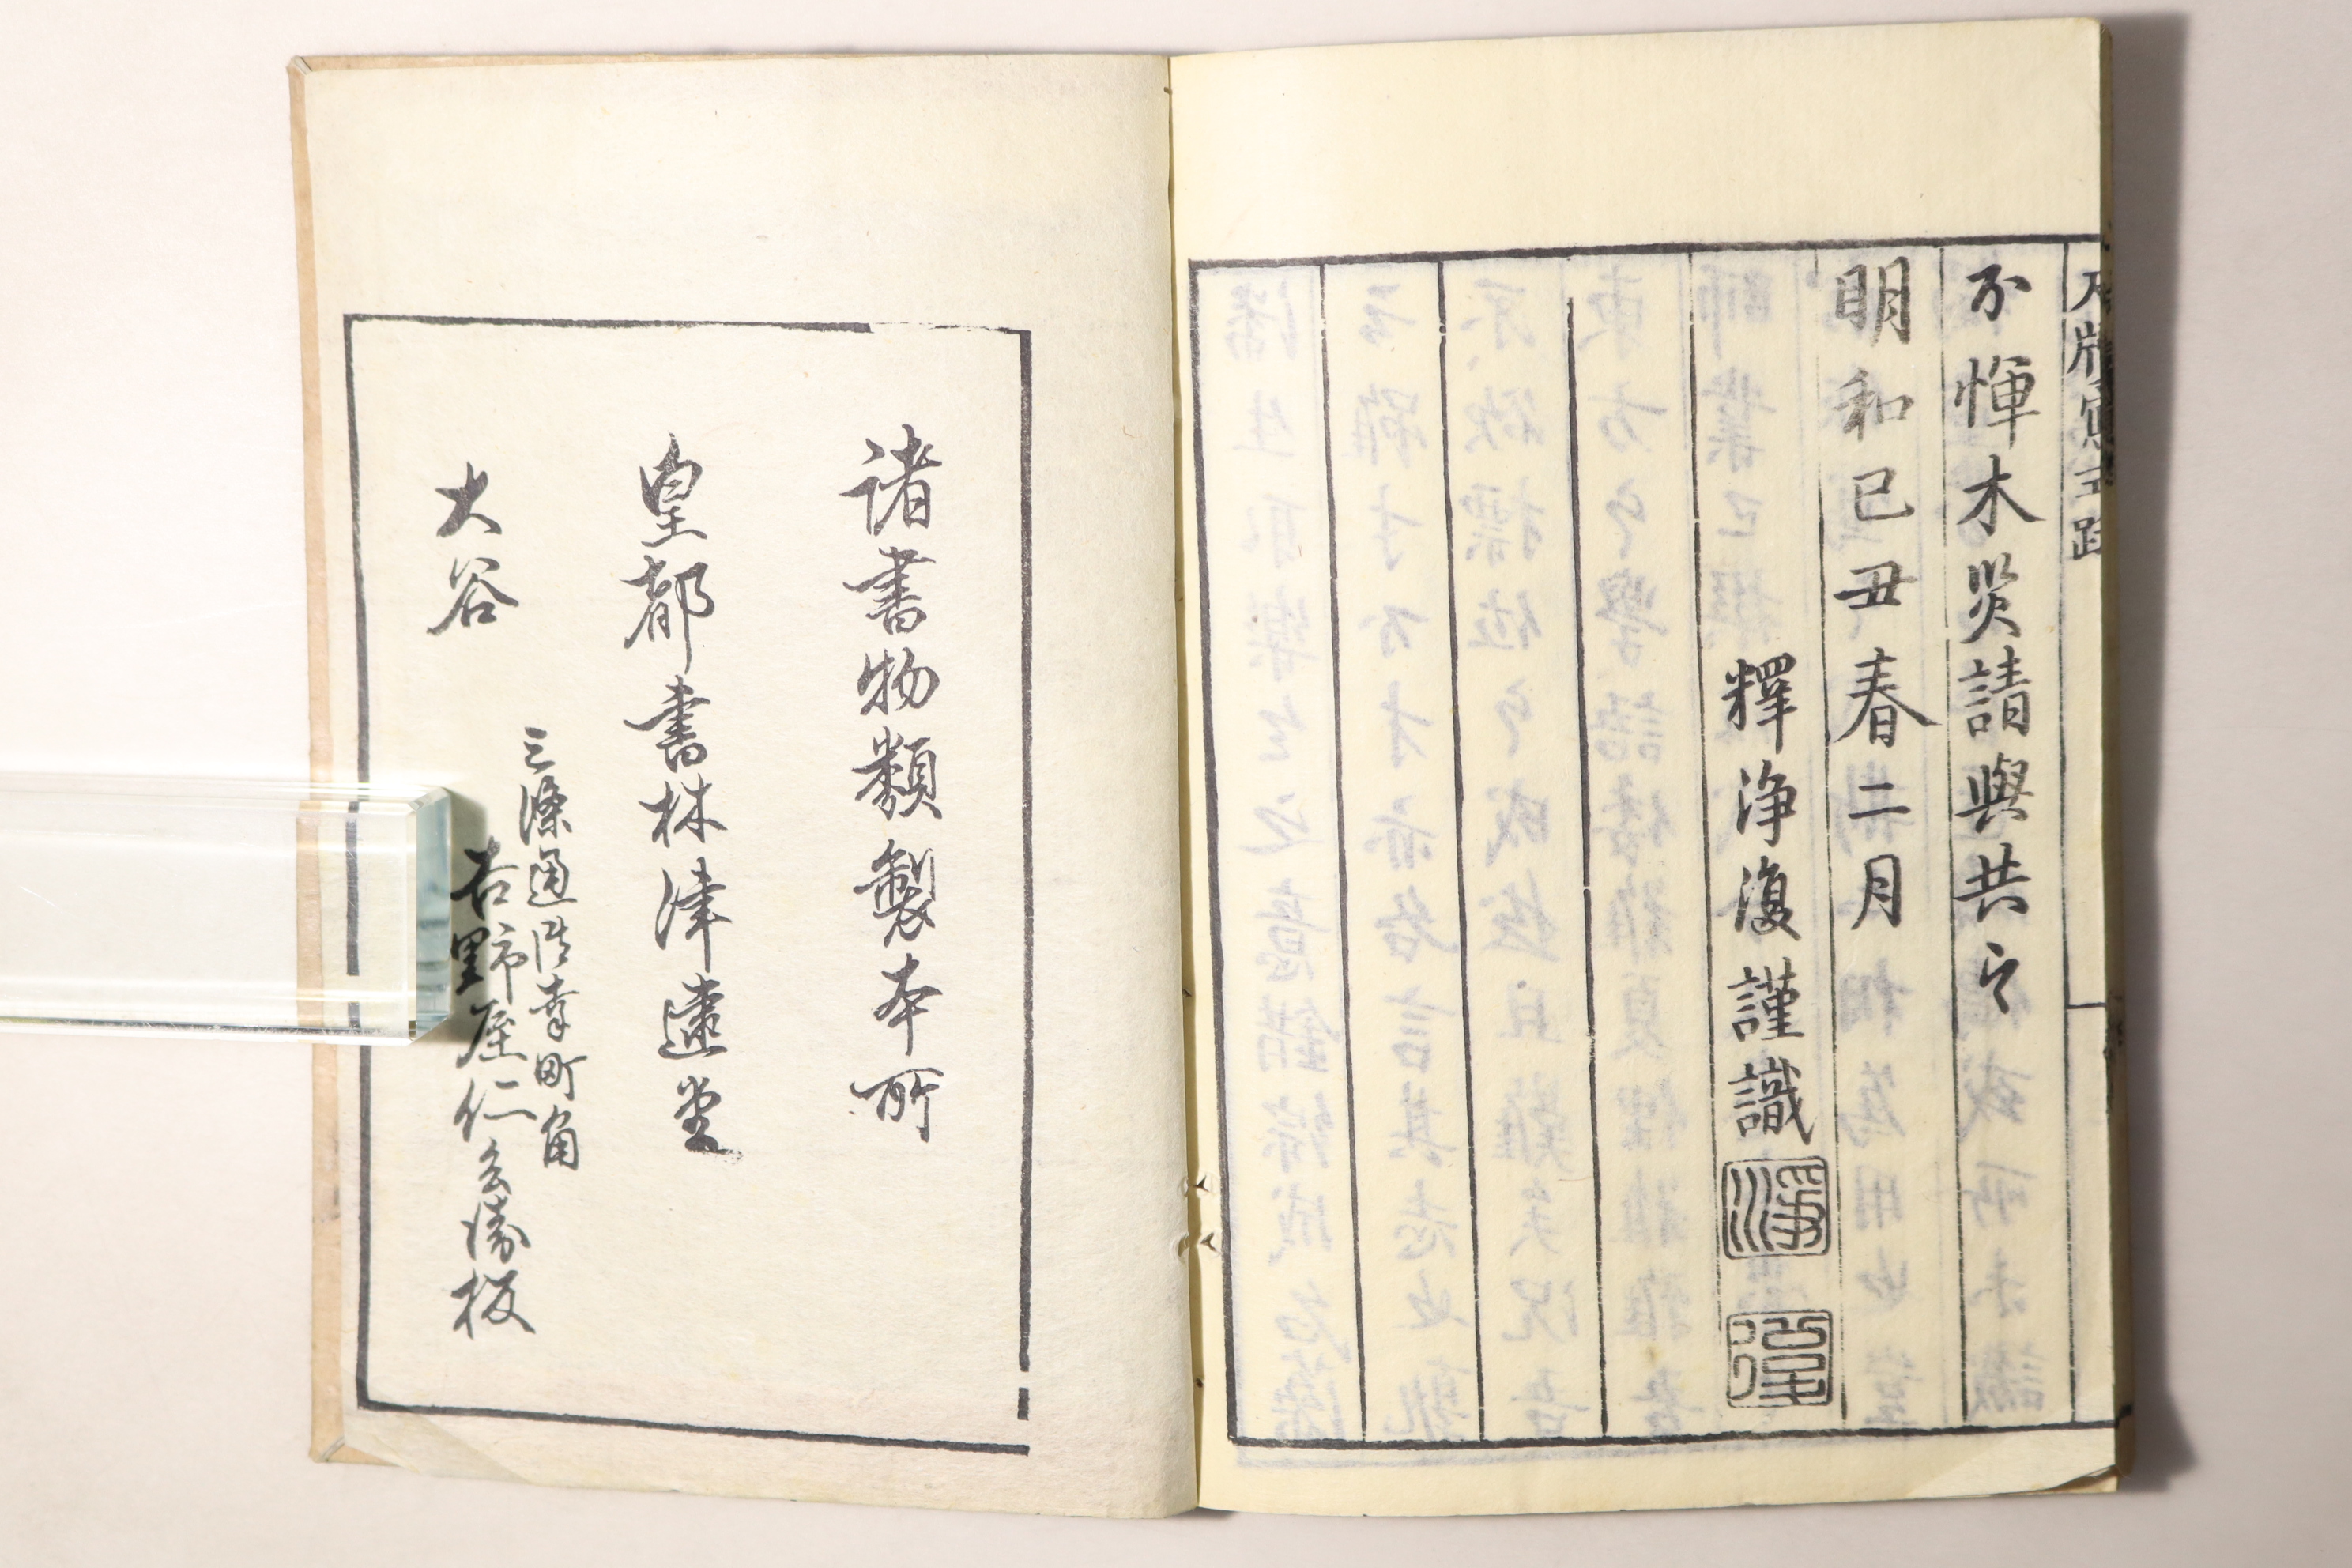 不憚木災請與共之
明和己丑春二月
釋淨復謹識
諸書物類製本所
皇都書林津逮堂
大谷
三條通御幸町角
吉野屋仁兵衛板